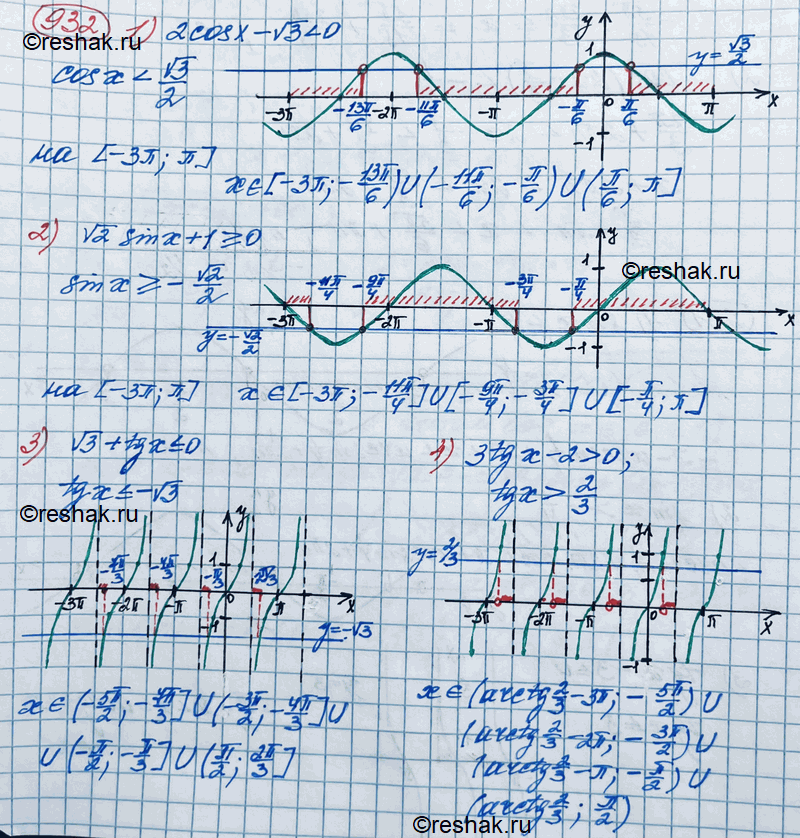 932 1) 2cosx - √3 < 0
©reshak.ru
cosx < √3/2
y = √3/2
y 1 0 x -1
-3π -13π/6 -2π -11π/6 -π -π/6 π/6 π
на [-3π; π]
x∈[-3π; -13π/6) U (-11π/6; -π/6) U (π/6; π]
2) √2 sinx + 1 ≥ 0
sinx ≥ -√2/2
©reshak.ru
y 1 0 x -1
-3π -11π/4 -9π/4 -2π -π -3π/4 -π/4 π
y = -√2/2
на [-3π; π] x∈[-3π; -11π/4] U [-9π/4; -3π/4] U [-π/4; π]
3) √3 + tgx ≤ 0
tgx ≤ -√3
©reshak.ru
y 1 0 x -1
-3π -7π/3 -2π -4π/3 -π -π/3 2π/3 π
y = -√3
x∈(-5π/2; -7π/3] U (-3π/2; -4π/3] U
U (-π/2; -π/3] U (π/2; 2π/3]
4) 3tgx - 2 > 0;
tgx > 2/3
©reshak.ru
y = 2/3
y 1 0 x -1
-3π -2π -π π
x∈(arctg 2/3 - 3π; -5π/2) U
(arctg 2/3 - 2π; -3π/2) U
(arctg 2/3 - π; -π/2) U
(arctg 2/3; π/2)
©reshak.ru